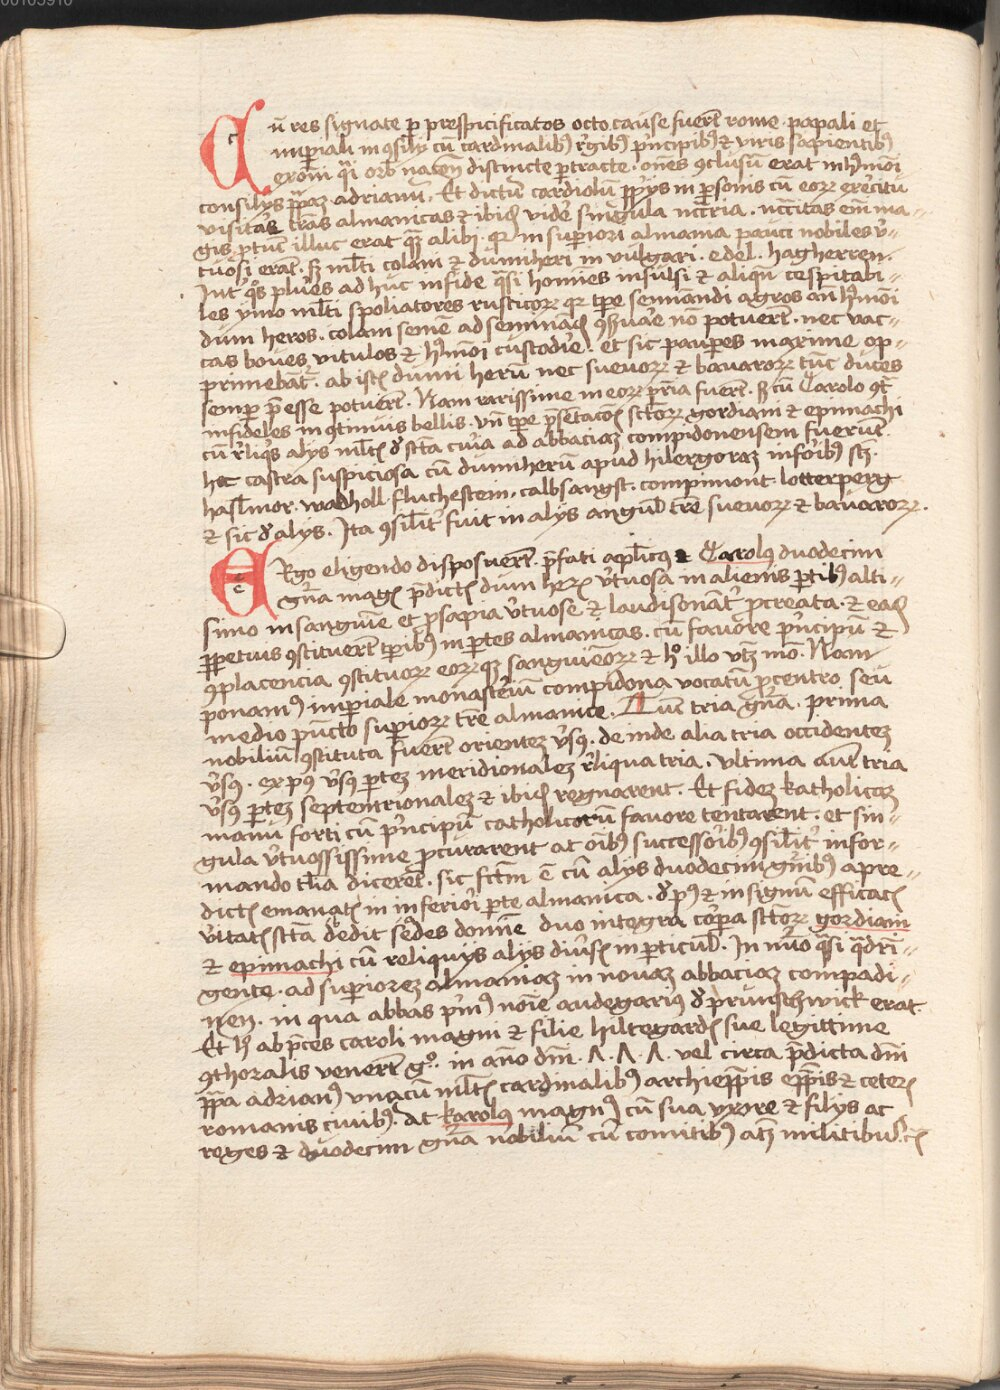 00103910
Cū res signate p prespicificatos octo cause fuerūt rome papali et
imperiali in 9silijs cū cardinalibꝰ regibꝰ principibꝰ et viris sapientibꝰ
distincte ptracte. oēs 9clusū erat in hmōi
consilijs papaz adrianū. Et dictū cardiolū ppijs in psonis cū eoꝝ exercitu
visitare tras almanicas et ibidē videre singula necria. necitas enī ma-
gis ptunc illuc erat qz alibi. qꝛ in superiori almania pauci nobiles vir-
tuosi erant. sz mlti colani et dumheri in vulgari. edel. hagherren.
Int qos plures ad huc infide qsi homies insulsi et aliqn cespitabi-
les ymo mlti spoliatores rusticoꝝ qꝛ tpe seminandi agros an hmōi
dum heros. colani semē ad seminādū non potuerūt. nec vac-
cas boues vitulos et hmōi custodire. et sic paupes maxime op-
primebātr. ab istis dum herū nec sueuoꝝ et bauaroꝝ tūc duces
semper pesse potuerūt. Nam rarissime in eoꝝ pria fuerūt. sz cū Carolo 9t
infideles in 9tinuis bellis. vn tpe psetacōis sctoꝝ gordiani et epimachi
cū reliqs alijs mltis ad abbaciaz compidonensem fuerūt.
hec castra suspiciosa cū dumherū apud hilergoraz inforibꝰ sz.
haslmor. wadholl. fluchestein. calbsangst. compimont. lotterperg
et sic d alijs. Ita 9silit fuit in alijs angulis tre sueuoꝝ et bauaroꝝ.
ERgo eligendo disposuerūt pfati aplicus et Carolus duodecim
gna magis pdictis dum heris virtuosa in alienis ptibꝰ alti-
simo in sanguine et psapia virtuose et laudisonāt pcreata. et eadē
ppetuis 9stituerūt tpibꝰ in ptes almanicas. cū fauore principū et
9placencia 9stitutoꝝ eoꝝqz et ho illo vtz mō. Nam
ponamꝰ imperiale monasterium compidona vocatū pcentro seu
medio pūcto superioꝝ tre almanice. tria gna. prima
nobilium 9stituta fuerūt orientez vsus. deinde alia tria occidentez
vsus. ex pꝰ vsus ptez meridionalez reliqua tria. vltima aut tria
vsus ptez septentrionalez et ibidē regnarent. Et fidez katholicaz
manu forti cū principū catholicorū fauore tentarent. et sin-
gula virtuossissime pcurarent ac oibꝰ successoribꝰ 9silit infor-
mando talia dicerent. sic fctm ē cū alijs duodecim gnibꝰ a pre-
dictis emanatis in inferiori pte almanica. et in signū efficacis
vitatis scta dedit sedes donne duo integra corpa sctoꝝ gordiani
et epimachi cū reliquijs alijs diuersis in pticulis. In nuo qsi qdrin-
gente. ad superiorez almaniaz in nouaz abbaciaz compadi-
nen. in qua abbas pmꝰ noīe audegarius d prunschwick erat.
Et ho ab pces caroli magni et filie hiltegardis sue legittime
9thoralis venerūt go. in año dni. Λ. Λ. Λ. vel circa pdicta dni
papa adrianꝰ vnacū mltis cardinalibꝰ archiepis epis et ceteris
romanis ciuibꝰ. at karolus magnꝰ cū sua vxore et filijs ac
reges et duodecim gna nobiliū cū comitibꝰ atz militibus